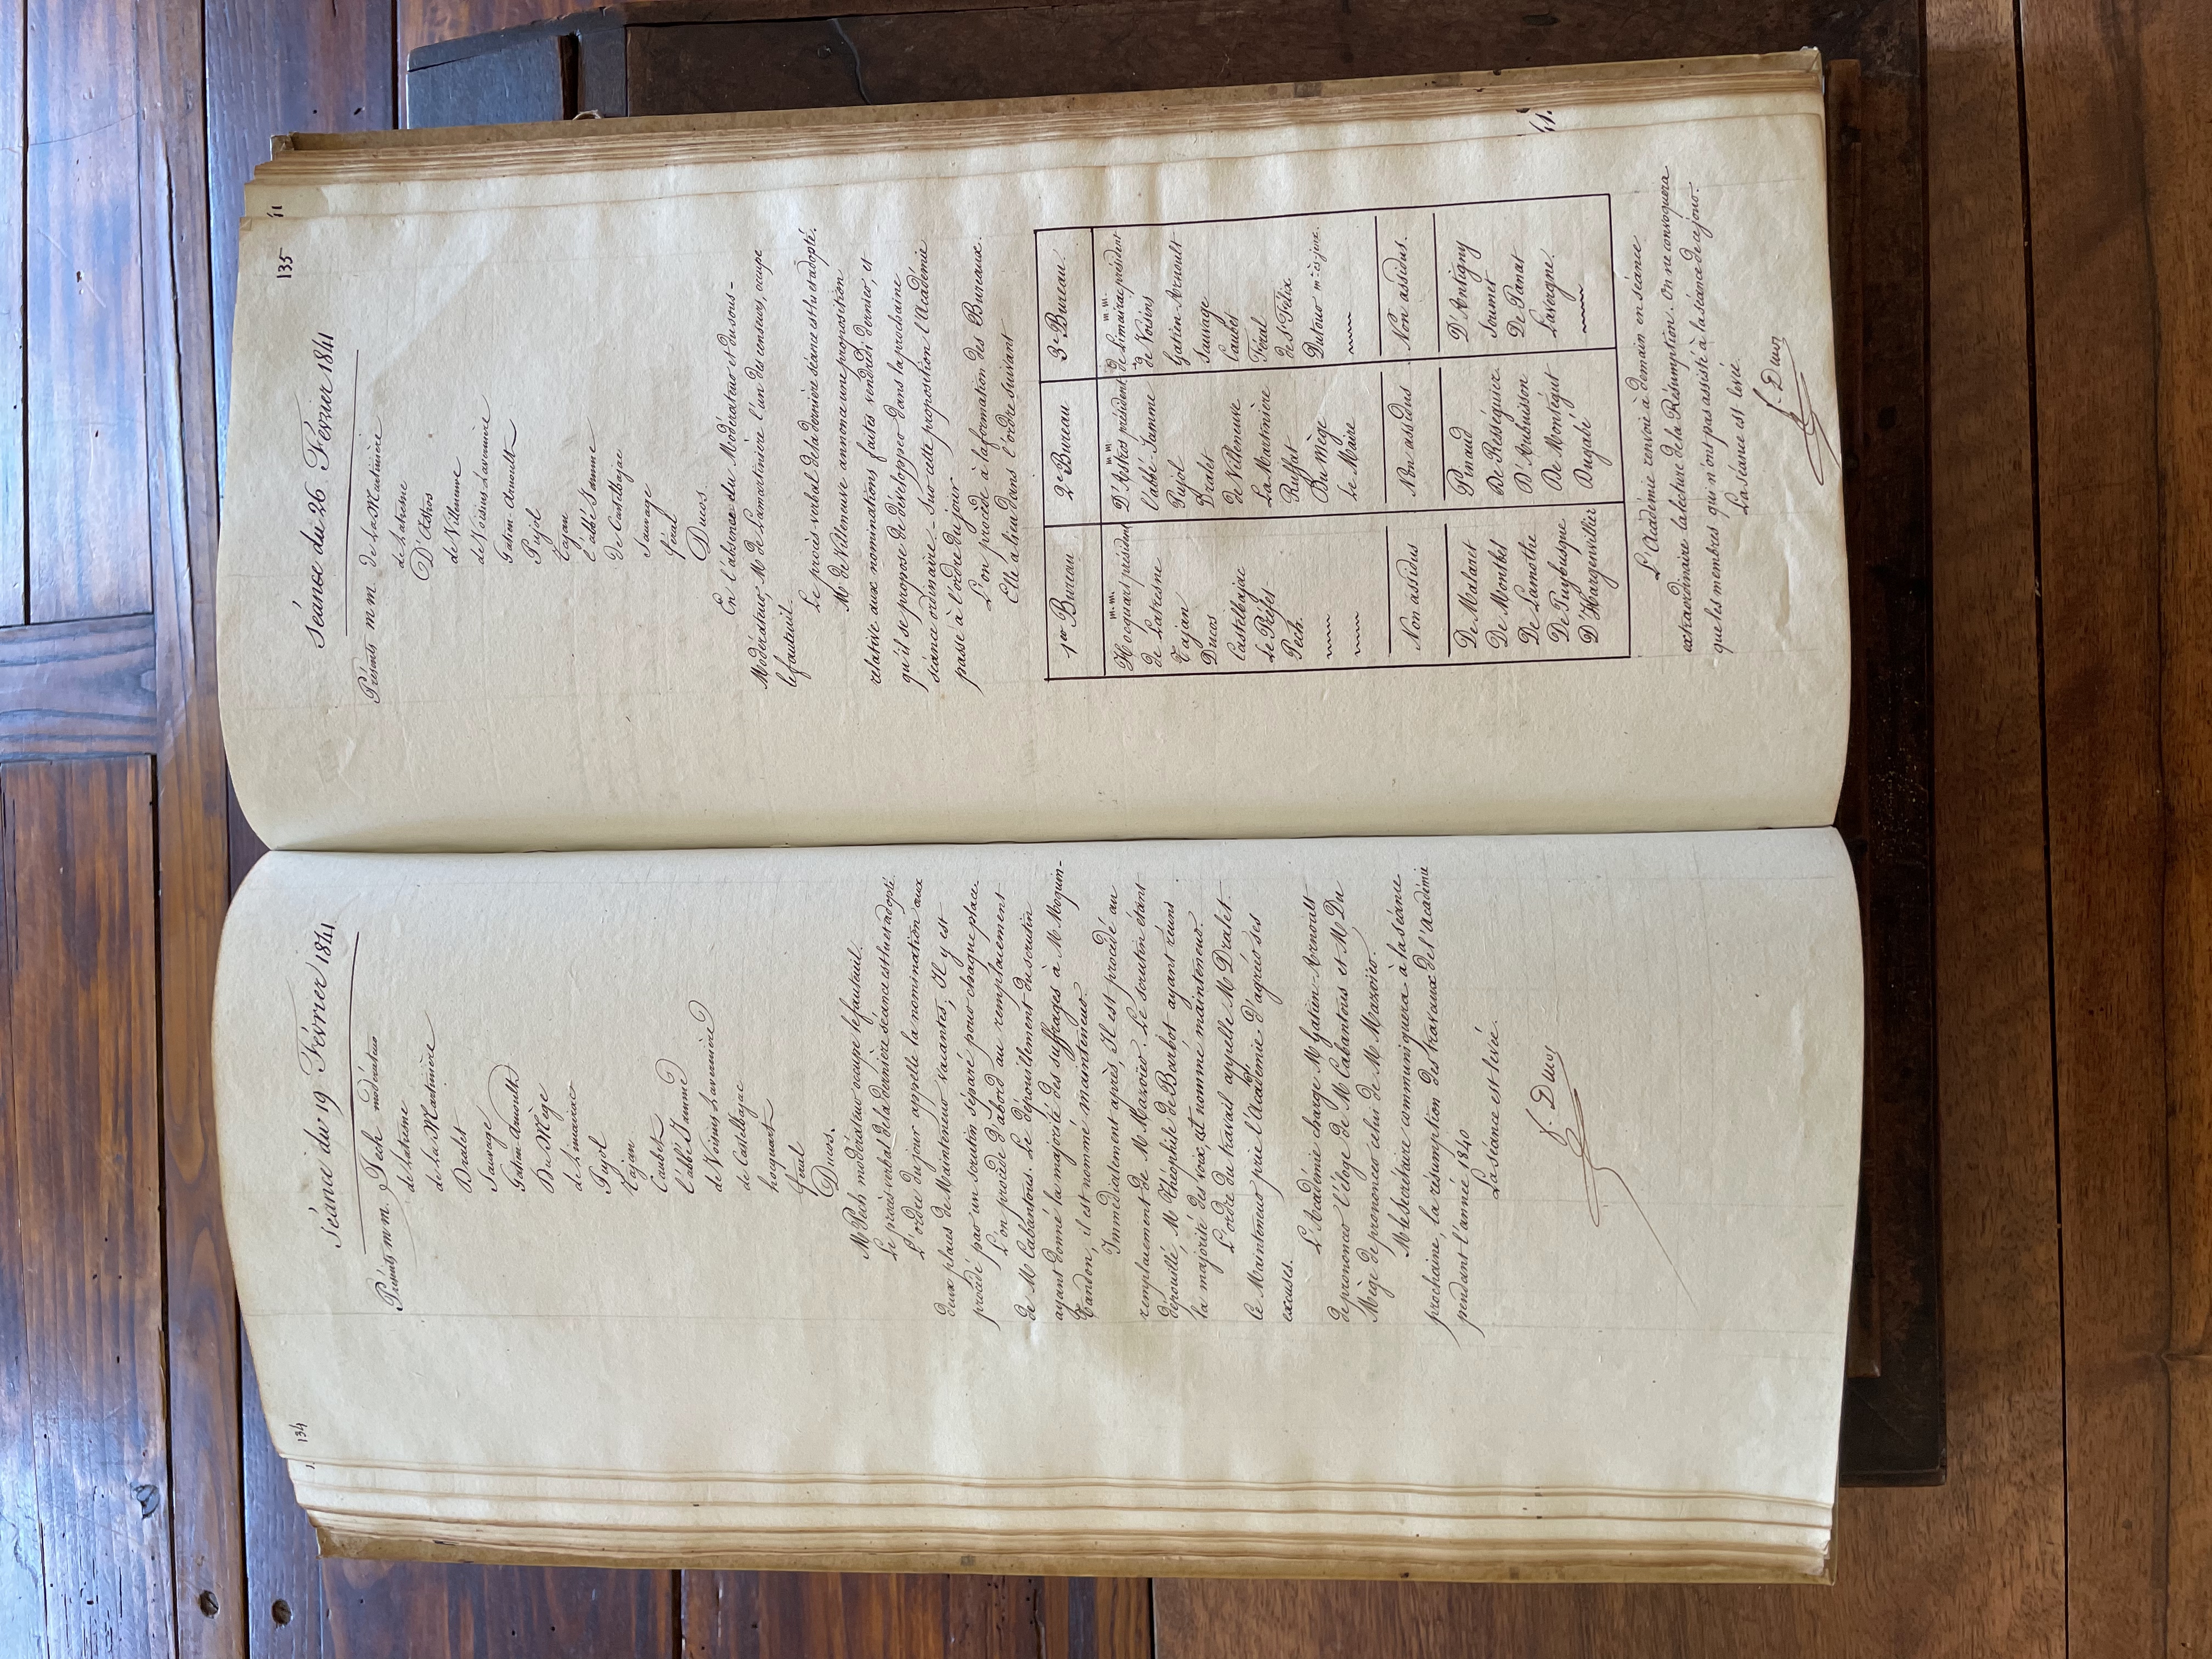 134
Séance du 19 Février 1841
Présents m m. Pech modérateur
de Latresne
de la Martinière
Dralet
Sauvage
Gatien-Arnoult
Du Mège
de Limairac
Pujol
Tajan
Caubet
l'abbé Jamme
de Voisins Lavernière
de Castelbajac
hocquart
féral
Ducos.
M Pech modérateur occupe le fauteuil.
Le procès-verbal de la dernière séance est lu et adopté.
L'ordre du jour appelle la nomination aux
deux places de Mainteneur vacantes; Il y est
procédé par un scrutin séparé pour chaque place.
L'on procède d'abord au remplacement
de M Cabantous. Le dépouillement du scrutin
ayant donné la majorité des suffrages à M Moquin-
Tandon, il est nommé mainteneur.
Immédiatement après, Il est procédé au
remplacement de M Mazoïer. Le scrutin étant
dépouillé, M Théophile de Barbot ayant réuni
la majorité des voix, est nommé mainteneur.
L'ordre du travail appelle M Dralet.
Ce Mainteneur prie l'Académie d'agréer ses
excuses.
L'Académie charge M Gatien-Arnoult
de prononcer l'éloge de M Cabantous et M Du
Mège de prononcer celui de M Mazoïer.
M le Secrétaire communiquera à la séance
prochaine, la résumption des travaux de l'Académie
pendant l'année 1840
La séance est levée.
f. Ducos
135
Séance du 26 Fevrier 1841
Présents m m. de La Martinière
de Latresne
D'Astros
de Villeneuve
de Voisins-Lavernière
Gatien-Arnoult
Pujol
Tajan
l'abbé Jamme
de Castelbajac
Sauvage
féral
Ducos
En l'absence du Modérateur et du sous-
Modérateur, M de Lamartinière l'un du censeurs, occupe
le fauteuil.
Le procès-verbal de la dernière séance est lu et adopté.
Mr de Villeneuve annonce une proposition
relative aux nominations faites vendredi dernier, et
qu'il se propose de développer dans la prochaine
séance ordinaire - Sur cette proposition l'Académie
passe à l'ordre du jour
L'on procède à la formation des Bureaux.
Elle a lieu dans l'ordre suivant
1er Bureau 2e Bureau 3e Bureau.
m.m. m.m m.m.
Hocquart président D'Astros président de Limairac président
de Latresne l'abbé Jamme de Voisins
Tajan Pujol Gatien-Arnoult
Ducos Dralet Sauvage
Castelbajac de Villeneuve Caubet
le Préfet La Martinière Féral
Pech. Ruffat de St Félix
Du Mège Dutour mtr ès jeux.
Le Maire
Non assidus Non assidus Non assidus.
De Malaret Pinaud D'Antigny
De Montbel De Rességuier Soumet
De Lamothe D'Aubuisson De Panat
De Puybusque De Montégut Lavergne.
D'Hargenvillier Dugabé
L'Académie renvoie à demain en séance
extraordinaire la lecture de la Résumption. On ne convoquera
que les membres qui n'ont pas assisté à la séance de ce jour.
La séance est levée.
f. Ducos